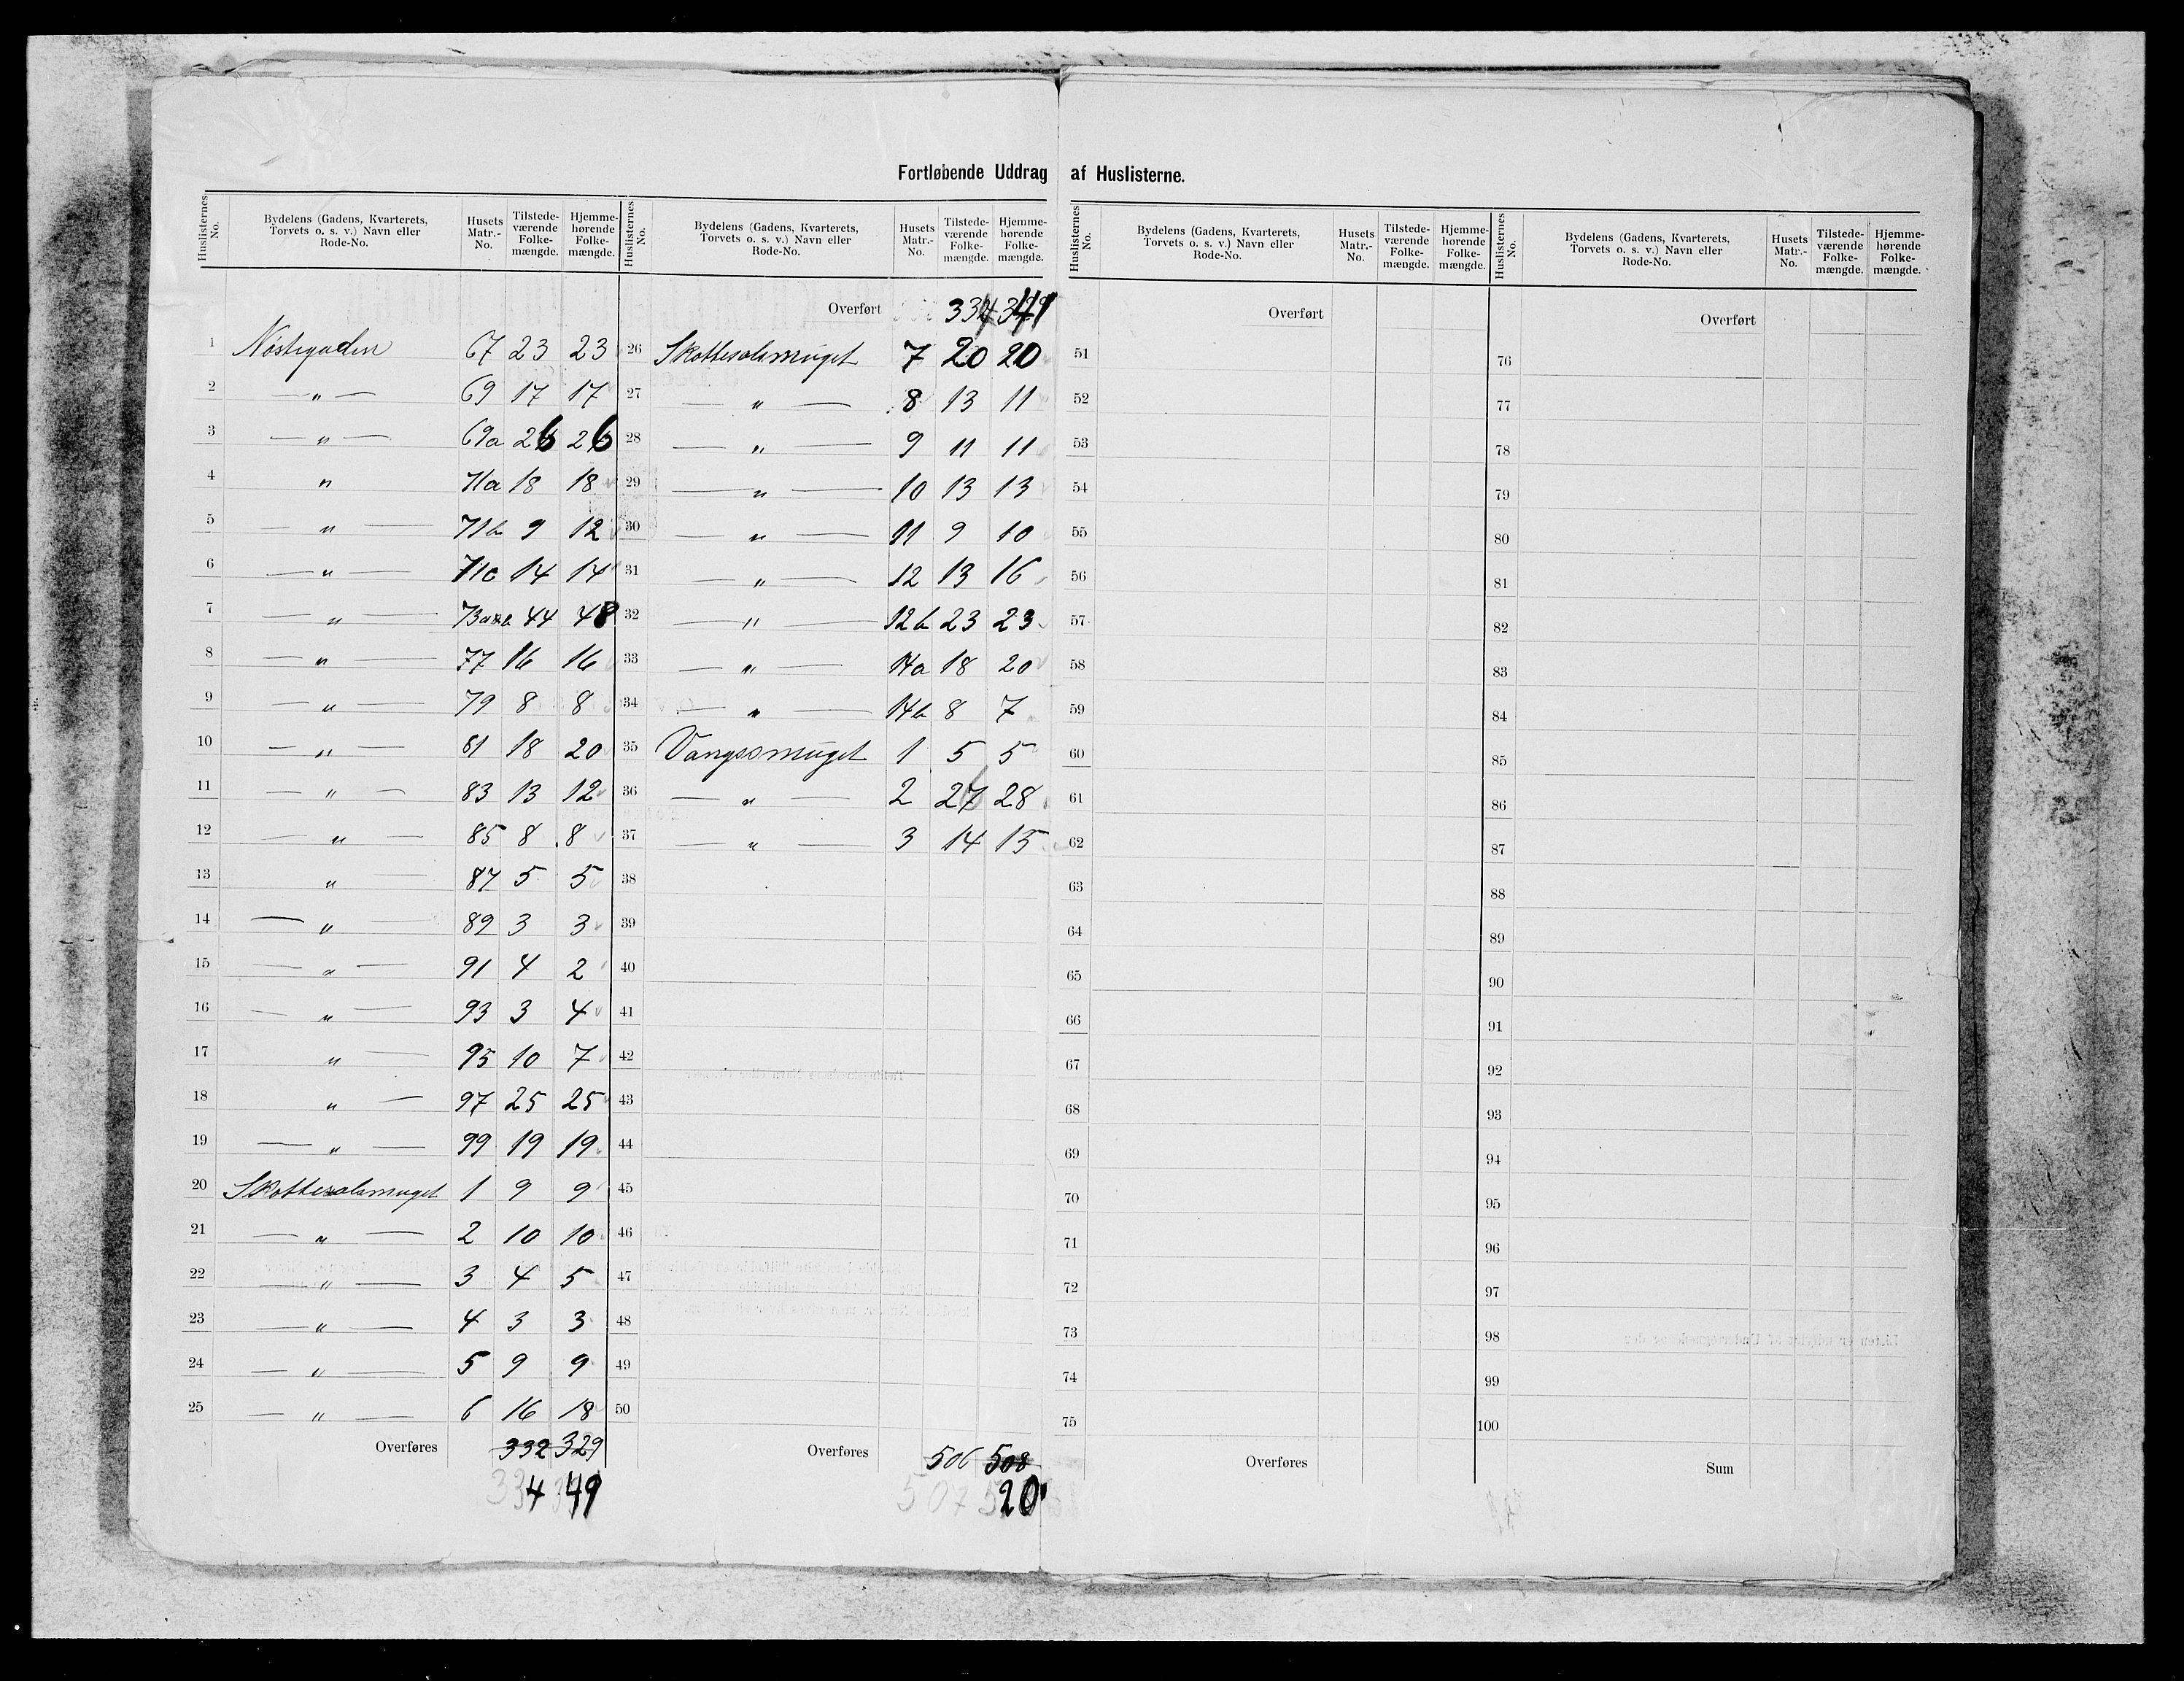 Fortløbende Uddrag af Huslisterne.
Huslisternes No. Bydelens (Gadens, Kvarterets, Torvets o. s. v.) Navn eller Rode-No. Husets Matr.-No. Tilstede-værende Folke-mængde. Hjemme-hørende Folke-mængde.
1 Nøstegaden 67 23 23
2 — " — 69 17 17
3 — " — 69a 26 26
4 " 71a 18 18
5 — " — 71b 9 12
6 — " — 71c 14 14
7 — " — 73a&b 44 48
8 — " — 77 16 16
9 — " — 79 8 8
10 — " — 81 18 20
11 — " — 83 13 12
12 — " — 85 8 8
13 " — 87 5 5
14 — " — 89 3 3
15 — " — 91 4 2
16 — " — 93 3 4
17 " — 95 10 7
18 " — 97 25 25
19 — " — 99 19 19
20 Skottesalsmuget 1 9 9
21 — " — 2 10 10
22 — " — 3 4 5
23 — " — 4 3 3
24 — " — 5 9 9
25 — " — 6 16 18
Overføres 332 329
334 49
Huslisternes No. Bydelens (Gadens, Kvarterets, Torvets o. s. v.) Navn eller Rode-No. Husets Matr.-No. Tilstede-værende Folke-mængde. Hjemme-hørende Folke-mængde.
Overført 334 341
26 Skottesalsmuget 7 20 20
27 — " — 8 13 11
28 — " — 9 11 11
29 — " — 10 13 13
30 — " — 11 9 10
31 — " — 12 13 16
32 — " — 12b 23 23
33 — " — 14a 18 20
34 — " — 14b 8 7
35 Vangsmuget 1 5 5
36 — " — 2 27 28
37 — " — 3 14 15
38
39
40
41
42
43
44
45
46
47
48
49
50
Overføres 506 508
507 20
Huslisternes No. Bydelens (Gadens, Kvarterets, Torvets o. s. v.) Navn eller Rode-No. Husets Matr.-No. Tilstede-værende Folke-mængde. Hjemme-hørende Folke-mængde.
Overført
51
52
53
54
55
56
57
58
59
60
61
62
63
64
65
66
67
68
69
70
71
72
73
74
75
Overføres
Huslisternes No. Bydelens (Gadens, Kvarterets, Torvets o. s. v.) Navn eller Rode-No. Husets Matr.-No. Tilstede-værende Folke-mængde. Hjemme-hørende Folke-mængde.
Overført
76
77
78
79
80
81
82
83
84
85
86
87
88
89
90
91
92
93
94
95
96
97
98
99
100
Sum